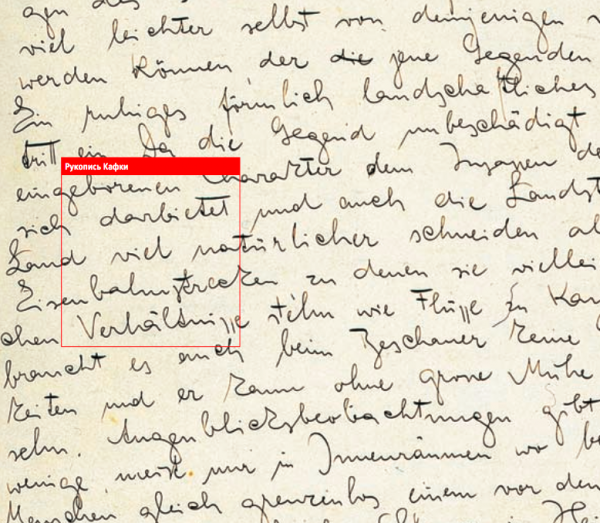 gen des
viel leichter selbst von demjenigen
werden können, der die jene Gegenden
Ein ruhiges förmlich landschaftliches
tritt ein Da die Gegend unbeschädigt
Рукопись Кафки
eingeborenen Charakter dem Insassen
sich darbietet und auch die
Land viel natürlicher schneiden
Eisenbahnstrecken zu denen sie
chen Verhältnisse stehn wie Flüsse zu
braucht es auch beim Beschauer keine
Zeiten und er kann ohne grosse Mühe
sehn. Augenblicksbeobachtungen gibt
wenige, meist nur in Innenräumen wo
Menschen gleich grenzenlos einem vor dem